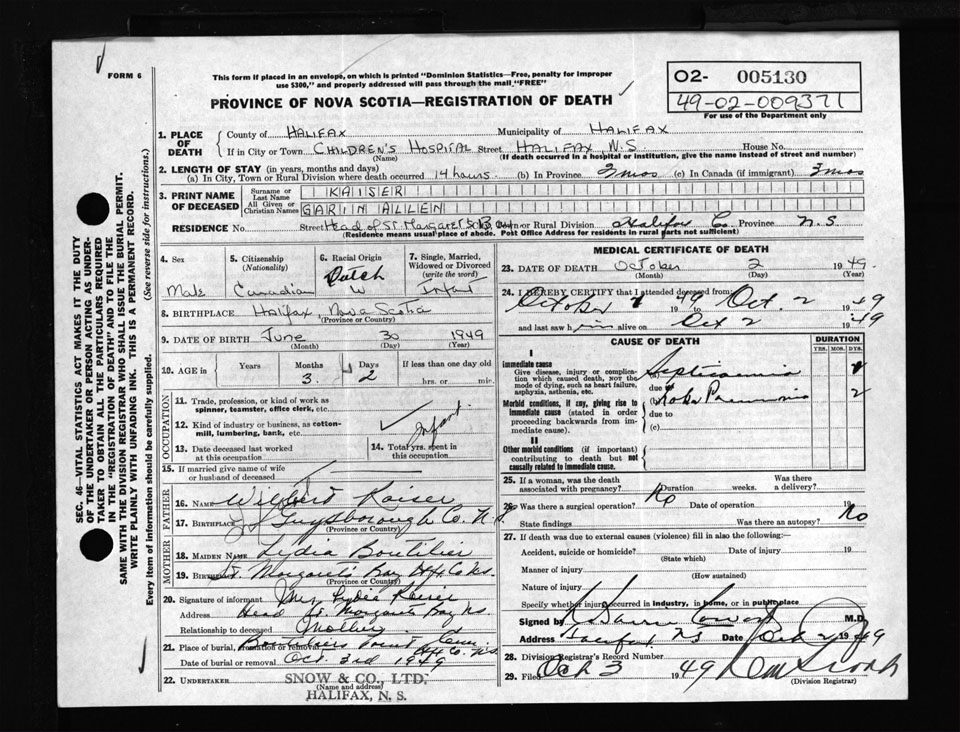 FORM 6
This form if placed in an envelope, on which is printed "Dominion Statistics—Free, penalty for improper
use $300," and properly addressed will pass through the mail "FREE"
O2- 005130
49-02-009371
For use of the Department only
PROVINCE OF NOVA SCOTIA—REGISTRATION OF DEATH
1. PLACE OF DEATH
County of HALIFAX Municipality of HALIFAX
If in City or Town CHILDREN'S HOSPITAL Street HALIFAX N.S. House No.
(Name) (If death occurred in a hospital or institution, give the name instead of street and number)
2. LENGTH OF STAY (in years, months and days)
(a) In City, Town or Rural Division where death occurred 14 hours (b) In Province 3 mos (c) In Canada (if immigrant) 3 mos
3. PRINT NAME OF DECEASED
Surname or Last Name KAISER
All Given or Christian Names GARIN ALLEN
RESIDENCE No. Street Head of St Margaret's Bay Town or Rural Division Halifax Co. Province N.S.
(Residence means usual place of abode. Post Office Address for residents in rural parts not sufficient)
4. Sex
Male
5. Citizenship (Nationality)
Canadian
6. Racial Origin
Dutch
W
7. Single, Married, Widowed or Divorced (write the word)
Infant
8. BIRTHPLACE Halifax, Nova Scotia
(Province or Country)
9. DATE OF BIRTH June 30 1949
(Month) (Day) (Year)
10. AGE in Years Months 3 Days 2 If less than one day old
hrs. or min.
OCCUPATION
11. Trade, profession, or kind of work as spinner, teamster, office clerk, etc.
12. Kind of industry or business, as cotton-mill, lumbering, bank, etc.
Infant
13. Date deceased last worked at this occupation
14. Total yrs. spent in this occupation
15. If married give name of wife or husband of deceased
FATHER
16. Name Wilbert Kaiser
17. Birthplace Guysborough Co. N.S.
(Province or Country)
MOTHER
18. MAIDEN NAME Lydia Boutilier
19. Birthplace St. Margaret's Bay Hfx Co Ns.
(Province or Country)
20. Signature of informant Mrs Lydia Kaiser
Address Head St. Margarets Bay Ns.
Relationship to deceased Mother
21. Place of burial, cremation or removal Boutiliers Point Cem. Hfx Co. N.S.
Date of burial or removal Oct. 3rd 1949
22. UNDERTAKER SNOW & CO., LTD.
(Name and address)
HALIFAX, N. S.
MEDICAL CERTIFICATE OF DEATH
23. DATE OF DEATH October 2 1949
(Month) (Day) (Year)
24. I HEREBY CERTIFY that I attended deceased from:
October 1 1949 to Oct. 2 1949
and last saw him alive on Oct 2 1949
CAUSE OF DEATH
DURATION
YRS. MOS. DYS.
I
Immediate cause
Give disease, injury or complication which caused death, NOT the mode of dying, such as heart failure, asphyxia, asthenia, etc.
(a) Septicaemia 1
due to
(b) Lobar Pneumonia 2
Morbid conditions, if any, giving rise to immediate cause (stated in order proceeding backwards from immediate cause).
due to
(c)
II
Other morbid conditions (if important) contributing to death but not causally related to immediate cause.
25. If a woman, was the death associated with pregnancy? Duration weeks. Was there a delivery?
26. Was there a surgical operation? No Date of operation 19
State findings Was there an autopsy? No
27. If death was due to external causes (violence) fill in also the following:—
Accident, suicide or homicide? Date of injury 19
(State which)
Manner of injury
(How sustained)
Nature of injury
Specify whether injury occurred in industry, in home, or in public place
Signed by M.D.
Address Halifax NS Date Oct 2 1949
28. Division Registrar's Record Number
29. Filed Oct 3 1949
(Division Registrar)
SEC. 46—VITAL STATISTICS ACT MAKES IT THE DUTY
OF THE UNDERTAKER OR PERSON ACTING AS UNDER-
TAKER TO OBTAIN ALL THE PARTICULARS REQUIRED
IN THE "REGISTRATION OF DEATH" AND TO FILE THE
SAME WITH THE DIVISION REGISTRAR WHO SHALL ISSUE THE BURIAL PERMIT.
WRITE PLAINLY WITH UNFADING INK. THIS IS A PERMANENT RECORD.
Every item of information should be carefully supplied. (See reverse side for instructions.)